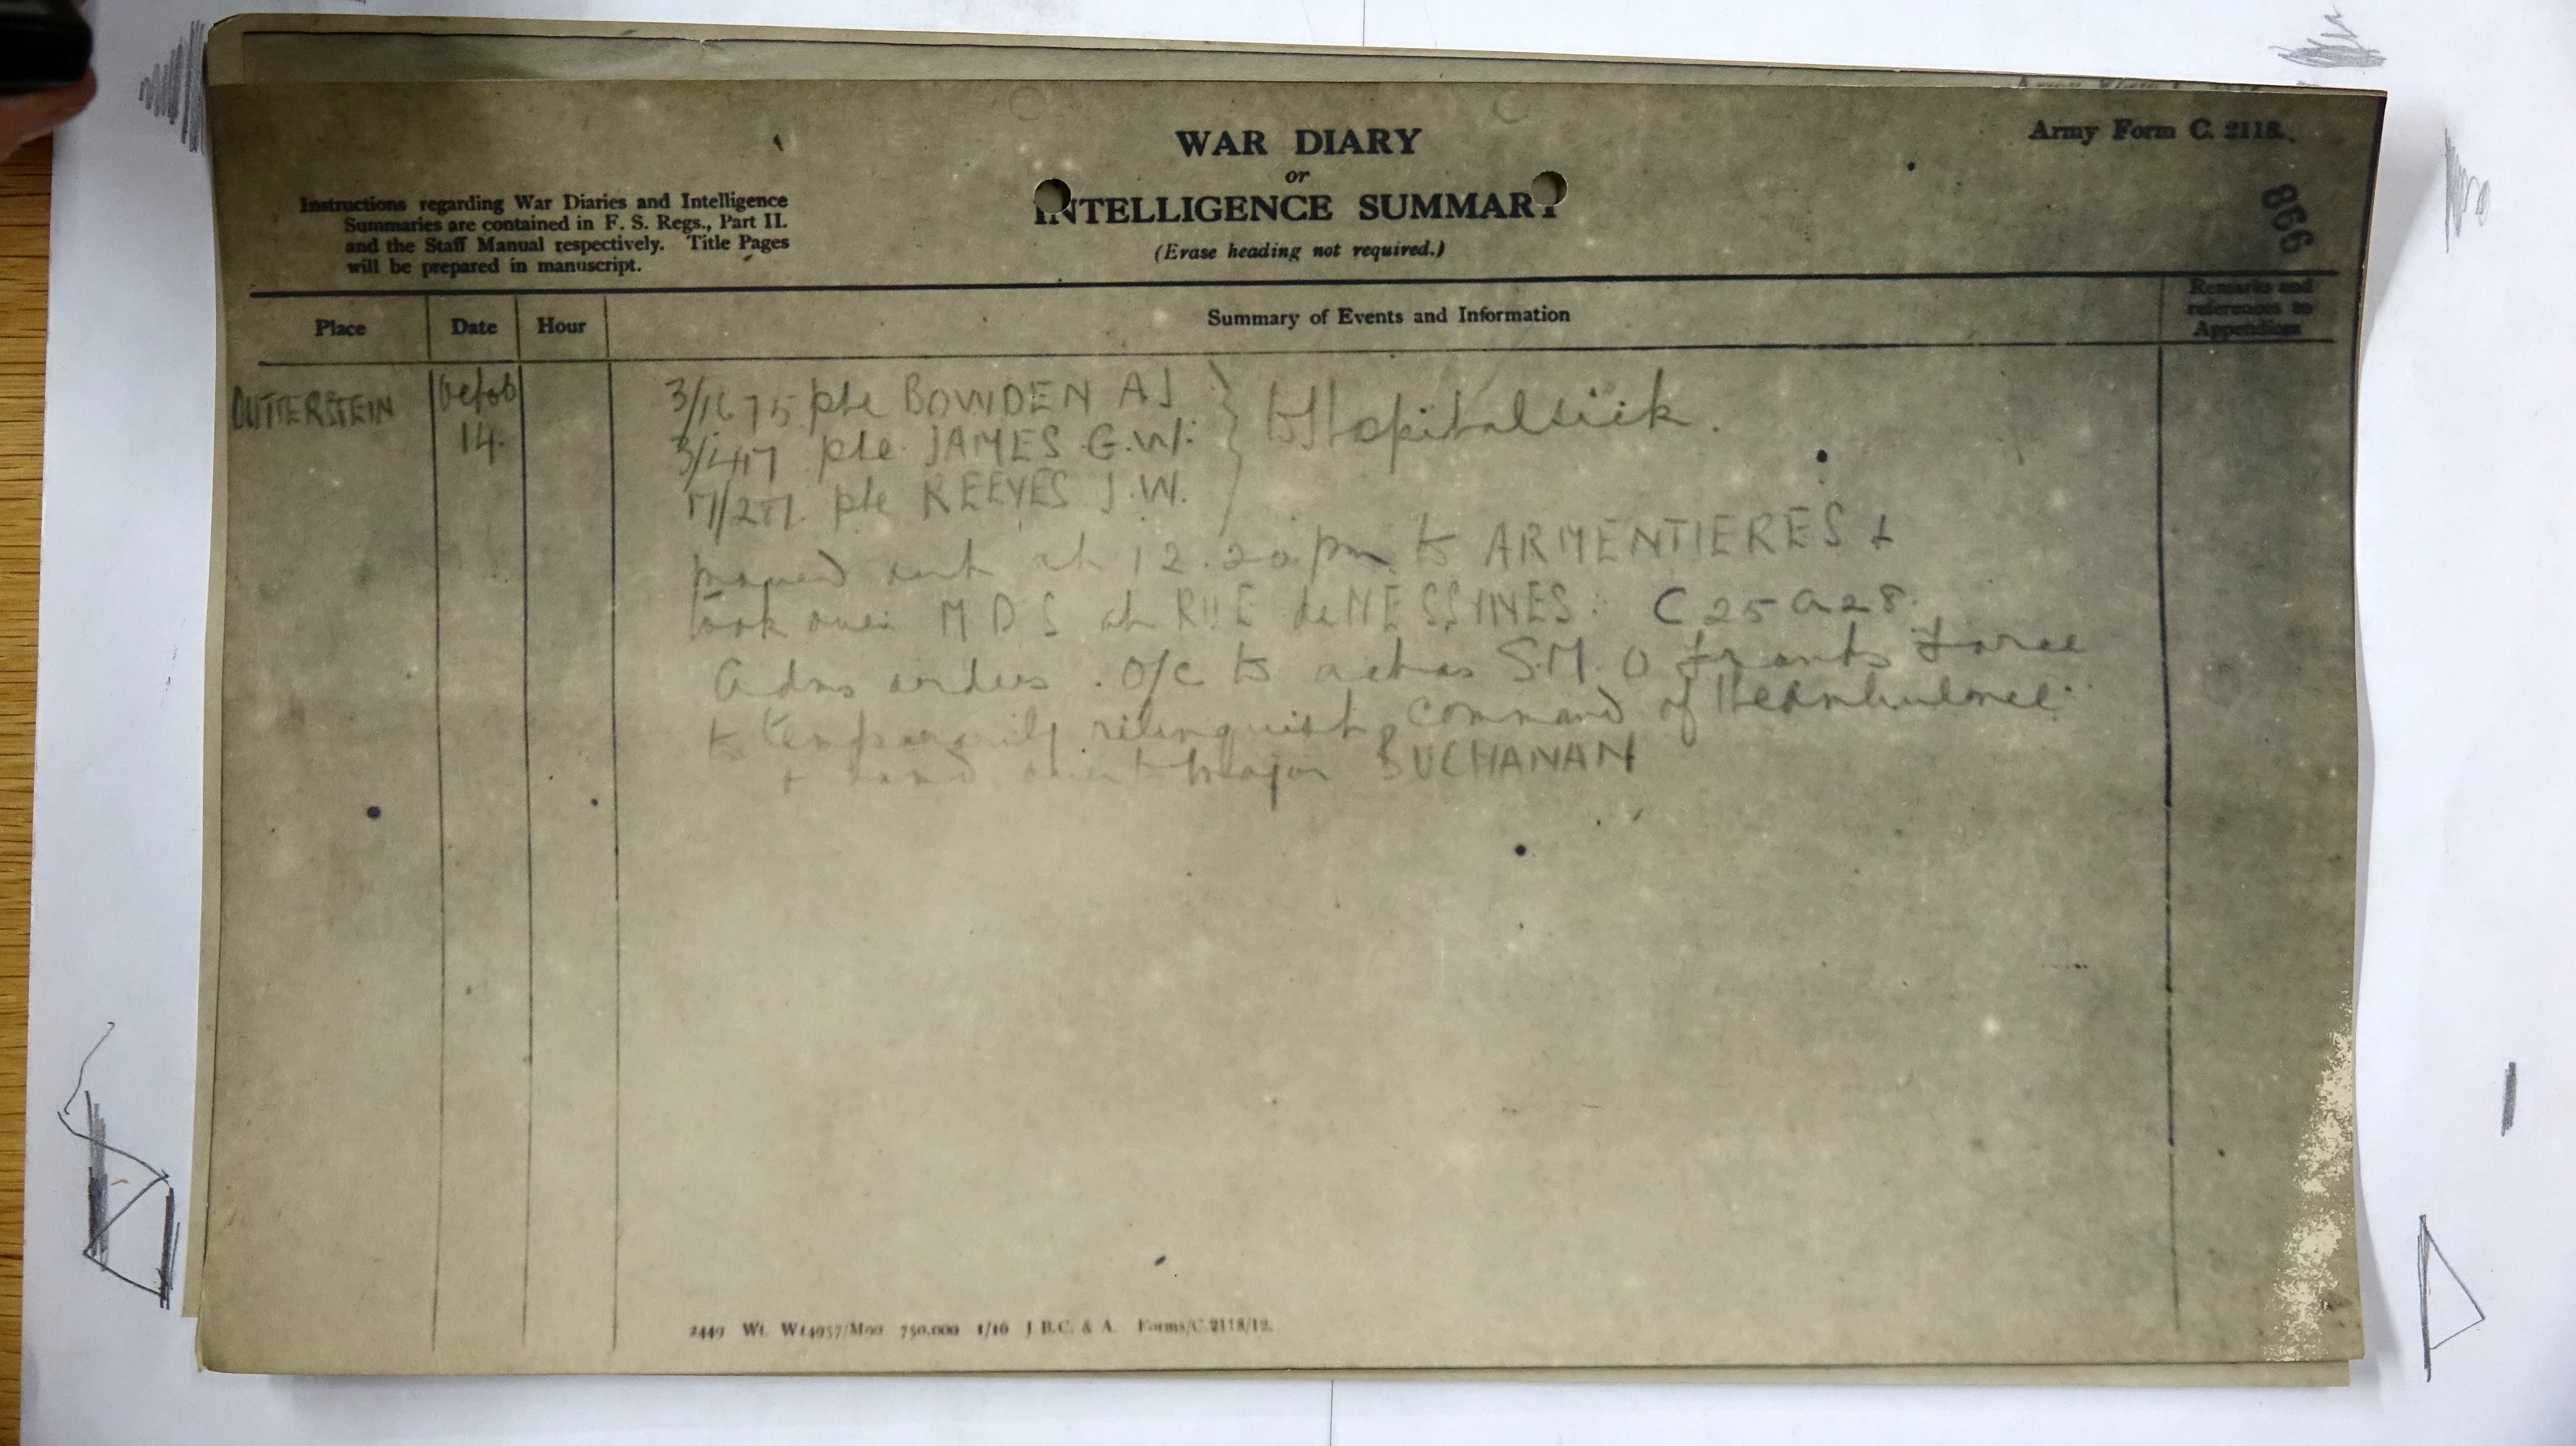 Army Form C. 2118.
WAR DIARY
or
INTELLIGENCE SUMMARY
(Erase heading not required.)
Instructions regarding War Diaries and Intelligence
Summaries are contained in F. S. Regs., Part II.
and the Staff Manual respectively. Title Pages
will be prepared in manuscript.
866
Place Date Hour Summary of Events and Information Remarks and references to Appendices
OUTTERSTEIN Octob 14.
3/1675 pte BOWDEN AJ
pte. JAMES G.W.
pte REEVES J.W.
to Hospital sick.
moved out at 12.20 pm to ARMENTIERES +
took over MDS at RUE de MESSINES. C25a28.
Adms orders. O/C to act as S.M.O franks force
to temporarily relinquish command of the Ambulance
+ hand over to Major BUCHANAN
2449 Wt. W14957/M90 750,000 1/16 J.B.C. & A. Forms/C.2118/12.